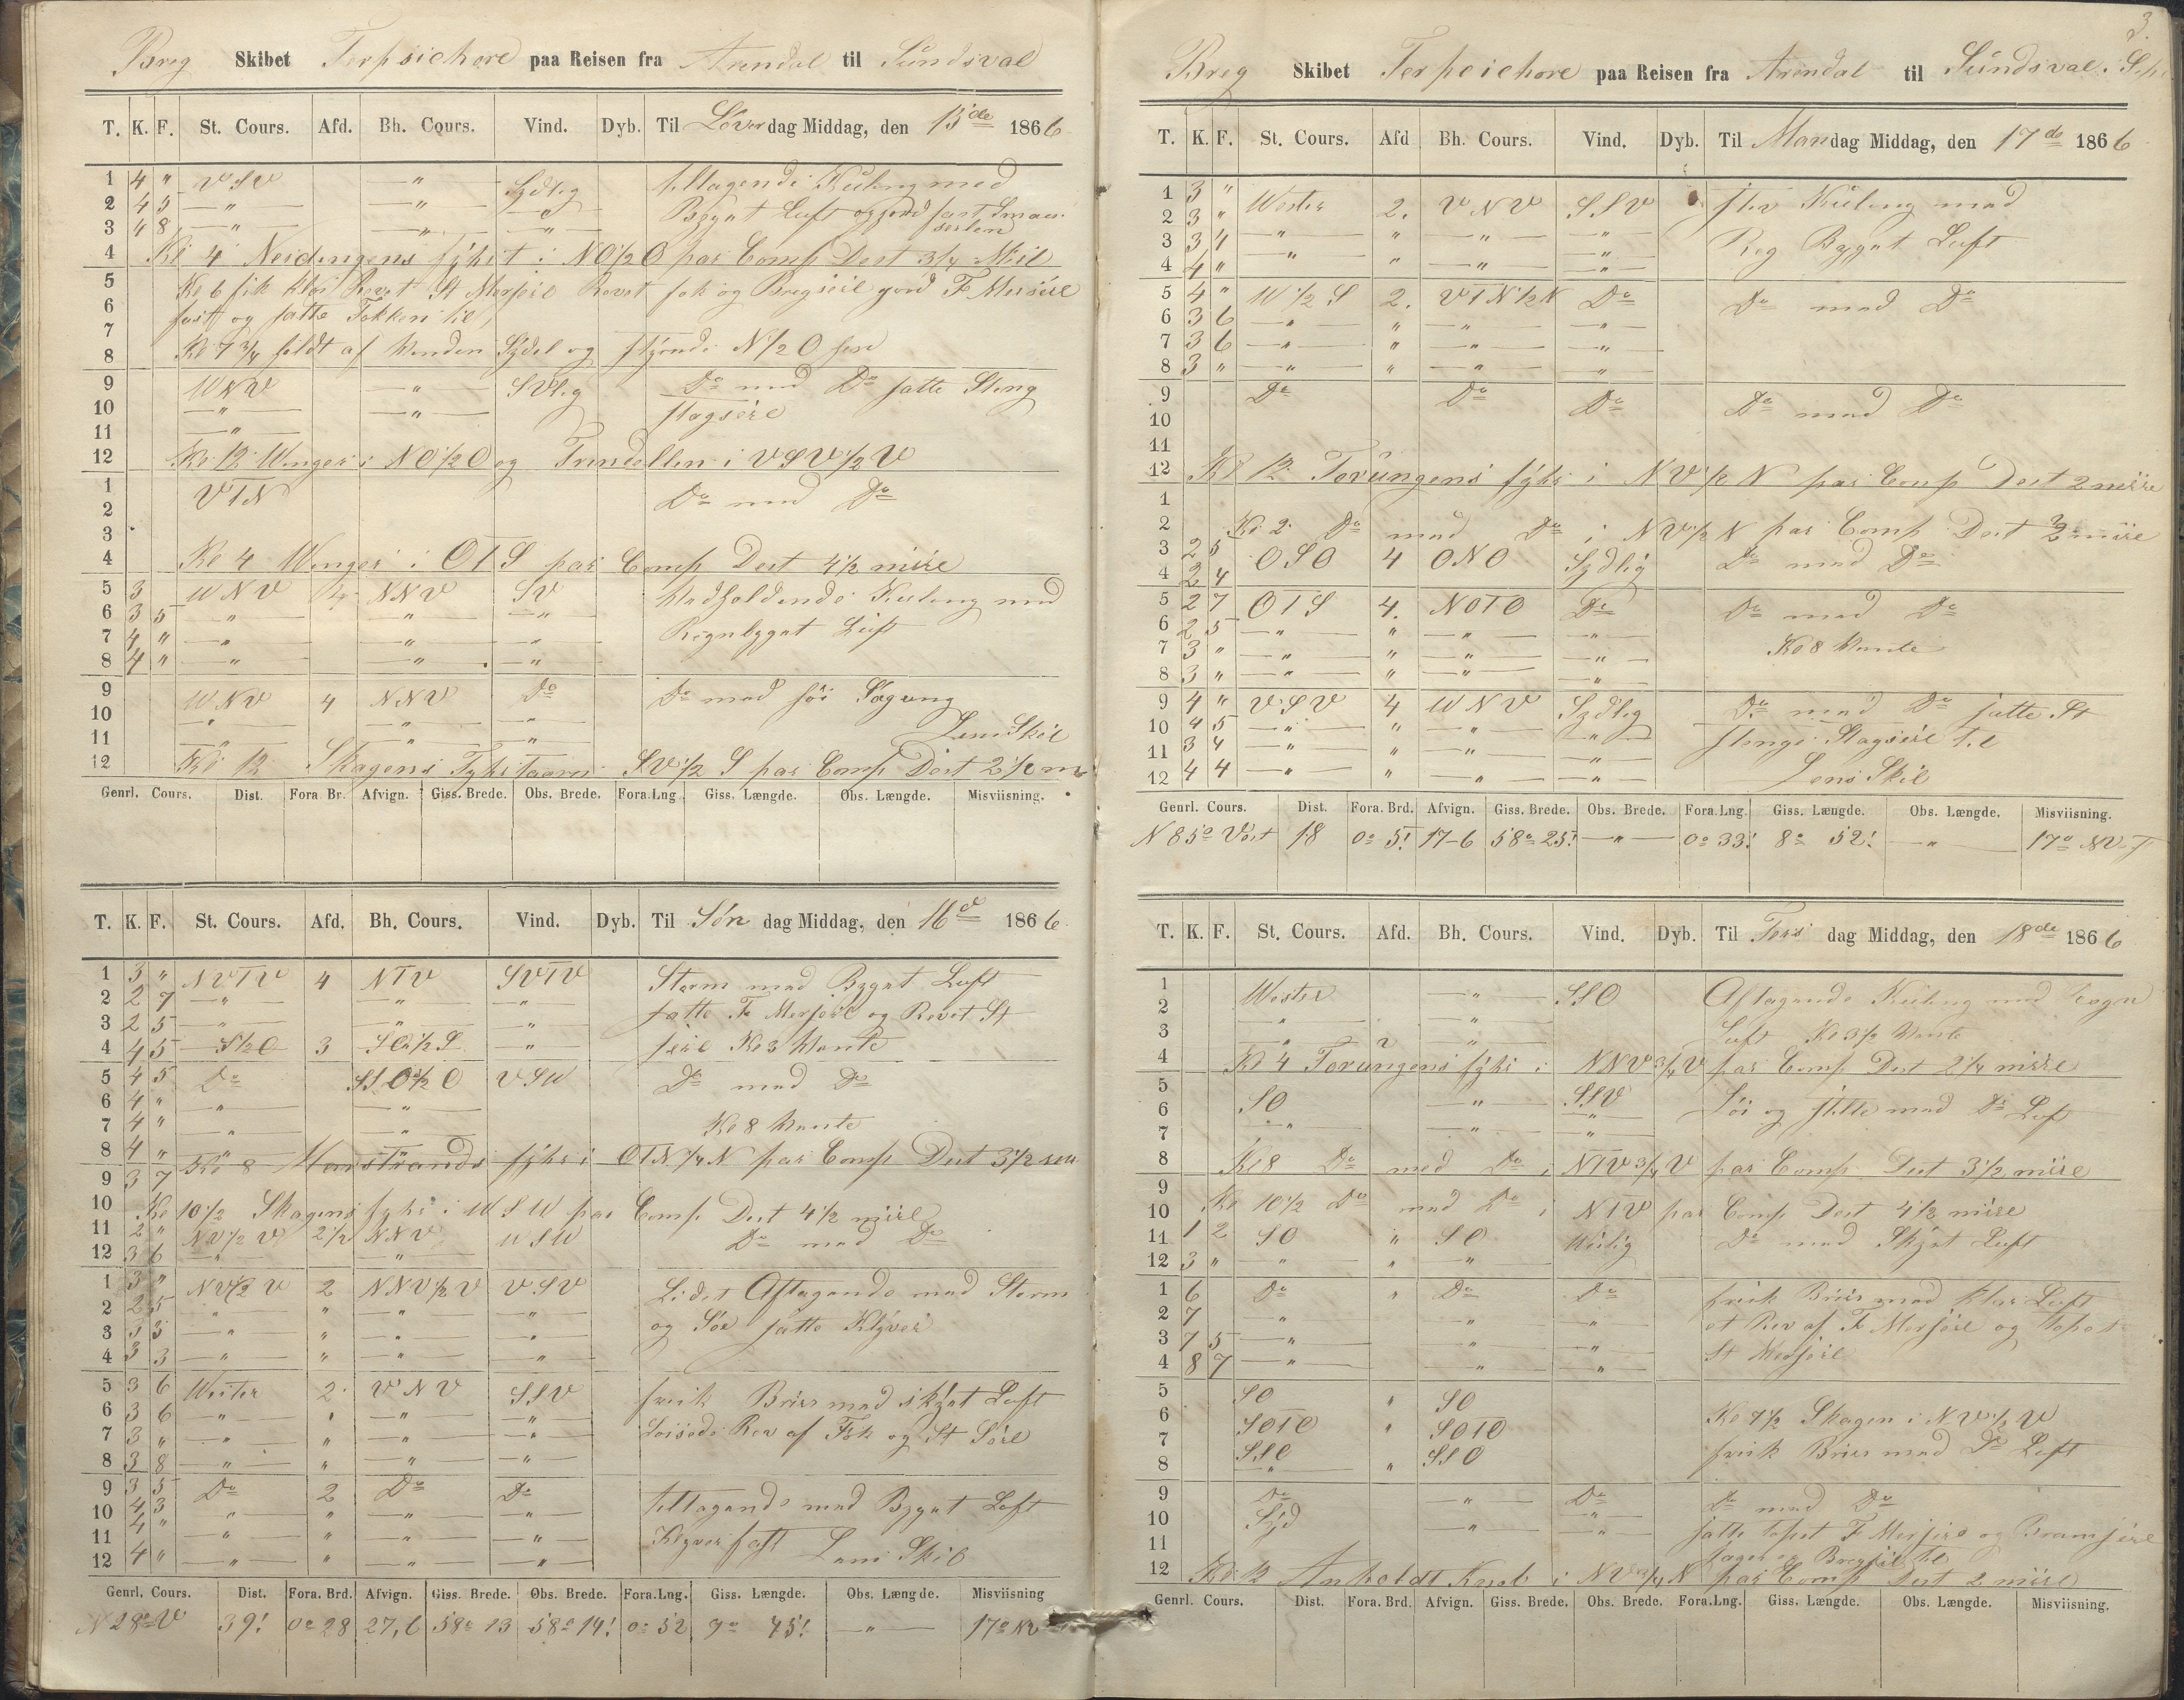 Breg Skibet Terpsichore paa Reisen fra Arendal til Sundsval
T. K. F. St. Cours. Afd. Bh. Cours. Vind. Dyb. Til Löverdag Middag, den 15de 1866
1 4 " VSV — " — Sydlig tiltagende Kuling med
2 4 5 — " — — " — Bygut Luft og gjord fast Smau
3 4 8 — " — — " — — " — seilen
4 Kl 4 Neidingens fyhr i NO 1/2 O par Comp Dest 3/4 Miil
5 Kl 6 fik Revet St Merseil Revet fok og Bregseil gjord F Merseil
6 fast og satte Fokken til
7
8 Kl 7 3/4 af Vinden Sydel og N 1/2 O
9 WNV — " — SVlig Do med Do satte Steng
10 — " — — " — stagseil
11 — " —
12 Kl 12 Winger i NO 1/2 O og Trindellen i VSV 1/2 V
1 VTN Do med Do
2
3
4 Kl 4 Winger i OTS par Comp Dest 4 1/2 miil
5 3 WNV 4 NNV SV Vedholdende Kuling med
6 3 5 — " — — " — — " — Regnbygut Luft
7 4 " — " — — " — — " —
8 4 " — " — — " — — " —
9 WNV 4 NNV Do Do med söe Gang
10 — " — — " — — " —
11 — " — — " — — " — Lens Skib
12 Kl 12 Skagens Fyhrtaarn SV 1/2 S par Comp Dest 2 1/2 m
Genrl. Cours. Dist. Fora Br. Afvign. Giss. Brede. Obs. Brede. Fora.Lng. Giss. Længde. Obs. Længde. Misviisning.
T. K. F. St. Cours. Afd. Bh. Cours. Vind. Dyb. Til Sön dag Middag, den 16d 1866
1 3 " NVTV 4 NTV SVTV Storm med Bygut Luft
2 2 7 — " — — " — — " — satte F Merseil og Revet St
3 2 5 — " — — " — — " — seil Kl 3 Vente
4 4 5 S 1/2 O 3 SO 1/2 S — " —
5 4 5 Do SSO 1/2 O VSW Do med Do
6 4 " — " — — " —
7 4 " — " — — " — Kl 8 Vente
8 4 " Kl 8 Marstrands fyhr i OTN 1/4 N par Comp Dest 3 1/2
9 3 7
10 Kl 10 1/2 Skagens fyhr i WSW par Comp Dest 4 1/2 miil
11 2 " NV 1/2 V 2 1/2 NNV WSW Do med Do
12 3 6 — " — — " —
1 3 " NV 1/2 V 2 NNV 1/2 V VSV Lidet Aftagende med Storm
2 2 5 — " — " — " — — " — og Söe satte Klyver
3 3 3 — " — " — " — — " —
4 3 3 — " — " — " — — " —
5 3 6 Wester 2 VNV SSV frisk Bries med skyet Luft
6 3 6 — " — " — " — — " — Löisede Rev af Fok og St Seil
7 3 " — " — " — " — — " —
8 3 8 — " — " — " — — " —
9 3 5 Do 2 Do Do tiltagende med Bygut Luft
10 4 3 — " — " — " — — " — Klyver fast
11 4 " — " — " — " — — " — Lens Skib
12 4 " — " — " — " — — " —
Genrl. Cours. Dist. Fora. Brd. Afvign. Giss. Brede. Obs. Brede. Fora.Lng. Giss. Længde. Obs. Længde. Misviisning
N 28° V 39! 0° 28 27,6 58° 13 58° 14! 0° 52 9° 45! — " — 17° NV
3.
Breg Skibet Terpsichore paa Reisen fra Arendal til Sundsval i
T. K. F. St. Cours. Afd Bh. Cours. Vind. Dyb. Til Mandag Middag, den 17de 1866
1 3 " Wester 2. VNV SSV stiv Kuling med
2 3 " — " — " — " — — " — Reg Bygut Luft
3 3 4 — " — " — " — — " —
4 4 " — " — " — " — — " —
5 4 " W 1/2 S 2. VTN 1/2 N Do Do med Do
6 3 6 — " — " — " — — " —
7 3 6 — " — " — " — — " —
8 3 " — " — " — " — — " —
9 Do Do Do Do med Do
10
11
12 Kl 12 Torungens fyhr i NV 1/2 N par Comp Dest 2 miil
1
2 Kl 2 Do med Do i NV 1/2 N par Comp Dest 2 miil
3 2 5 OSO 4 ONO Sydlig Do med Do
4 2 4
5 2 7 OTS 4. NOTO Do Do med Do
6 2 5 — " — " — " — — " —
7 3 " — " — " — " — — " — Kl 8 Vente
8 3 " — " — " — " — — " —
9 4 " VSV 4 WNV Sydlig Do med Do satte St
10 4 5 — " — " — " — — " — stenge Stagseil til
11 3 4 — " — " — " — — " —
12 4 4 — " — " — " — — " — Lens Skib
Genrl. Cours. Dist. Fora. Brd. Afvign. Giss. Brede. Obs. Brede. Fora.Lng. Giss. Længde. Obs. Længde. Misviisning.
N 85° Vest 18 0° 5! 17-6 58° 25! — " — 0° 33! 8° 52! — " — 17° NV
T. K. F. St. Cours. Afd. Bh. Cours. Vind. Dyb. Til Tirs dag Middag, den 18de 1866
1 Wester — " — SSO Aftagende Kuling med
2 — " — — " — Luft Kl 3 1/2 Vente
3 — " — — " —
4 Kl 4 Torungens fyhr i NNV 3/4 V par Comp Dest 2 1/4 miil
5 SO — " — SSV Löi og stille med Do Luf
6 — " — — " — — " —
7
8 Kl 8 Do med Do i NTV 3/4 V par Comp Dest 3 1/2 miil
9
10 Kl 10 1/2 Do med Do i NTV par Comp Dest 4 1/2 miil
11 1 2 SO " SO Weslig Do med Skyet Luft
12 3 " " " "
1 6 Do " Do Do frisk Bries med klar Luft
2 7 — " — — " — — " — et Rev af F Merseil og Topet
3 7 5 — " — — " — — " — St Merseil
4 8 7 — " — — " — — " —
5 SO " SO
6 SOTO " SOTO Kl 7 1/2 Skagen i NV 1/2 V
7 SSO " SSO frisk Bries med Do Luft
8 — " —
9 Do — " — Do Do med Do
10 Syd — " — — " — satte Topet F Merseil og Bramseil
11 Jager og Bregseil til
12 Kl 12 Anholdt Knob i NV 3/4 N par Comp Dest 2 miil
Genrl. Cours. Dist. Fora. Brd. Afvign. Giss. Brede. Obs. Brede. Fora.Lng. Giss. Længde. Obs. Længde. Misviisning.